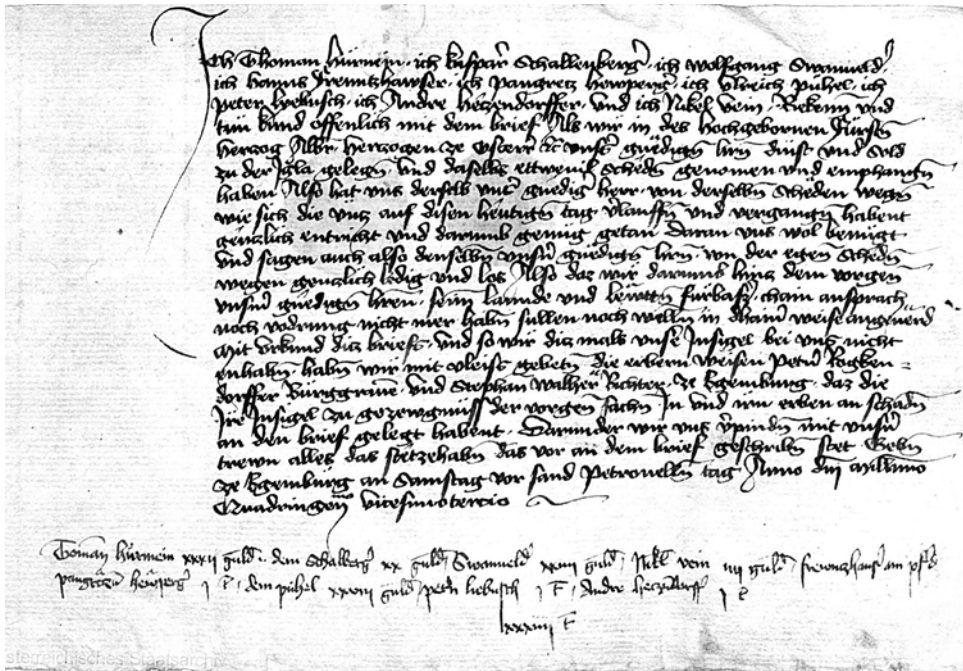 Ich Thoman hürnein · ich kaspar Schallenberg̃ · ich wolfgang Swanueld̃
ich hanns frewntzhawser · ich Pangretz hewperg̃ · ich vlreich pühel · ich
Peter liebisch · ich Andre hetzendorffer · vnd ich Nikel vein · Bekenn̄ vnd
tün kund offenlich mit dem brief Als wir in des hochgebornen Fürstn̄
herzog Albr̄ herzogen ze Österr̄ etc vns̄s gnedign̄ hrn̄ dinst vnd Sold
zu der Igla gelegn̄ vnd daselbs ettweuil Schedn̄ genomen vnd emphangn̄
haben Also hat vns derselb vns̄ gnedig herr · von derselbn̄ Scheden wegn̄
wie sich die vntz auf disen heutign̄ tag v̄lauffn̄ vnd vergangn̄ habent
gentzlich entricht vnd darumb genüg getan daran vns wol benügt
Vnd sagen auch also denselbn̄ vnsn̄ gnedign̄ hrn̄ · von der egen̄ Schedn̄
wegen gentzlich ledig vnd los Also daz wir darumb hintz dem vorgen̄
vnsn̄ gnedign̄ hren̄ · seinn lannde vnd lewttn̄ fürbasz̄ · chain ansprach
noch vodrung nicht mer habn̄ sullen noch welln̄ in dhain̄ weise angeuerd
Mit vrkund ditz briefs · vnd so wir ditz mals vnsr̄ Insigel bei vns nicht
enhabn̄ · habn̄ wir mit vleiss gebetn̄ die erbern weisen Petn̄ Rogken=
dorffer Burggraue · vnd Stephan walher Richter · ze Egemburg · daz die
Ire Insigel zu gezewgnüss der vorgen̄ sachn̄ In vnd irn erben an schadn̄
an den brief gelegt habent · Darunder wir vns v̄pindn̄ mit vnsn̄
trewn alles das stetzehabn̄ das vor an dem brief geschribn̄ stet Gebn̄
ze Egemburg an Samstag vor sand Petronelln̄ tag Anno dn̄i Millm̄o
Quadringen̄o vicesimotercio
Toman hürnein xxxii guld̄ · dem Schalberg̃ xx guld̄ Swanueld̃ xxiiii guld̄ Nikl vein iiii guld̄ frewntzhaus̃ am pf̄d
pangretzn̄ hewperg̃ · dem pühel xxviii guld̄ petn̄ liebisch Andre hetzndorff̃
lxxxiiii